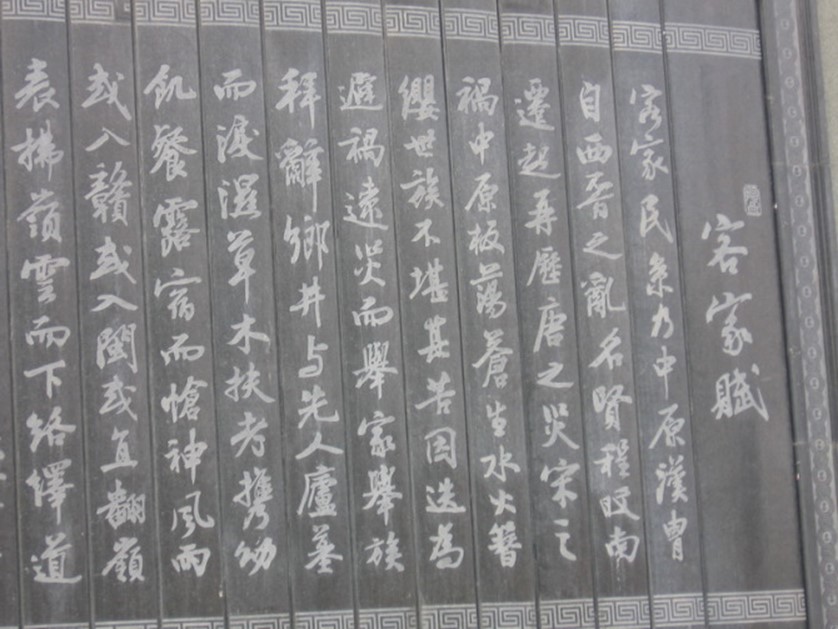 客家賦
客家民系乃中原漢胄
自西晉之亂名賢程旼南
遷起再歷唐之災宋之
禍中原板蕩蒼生水火簪
纓世族不堪其苦因迭為
避禍遠災而舉家舉族
拜辭鄉井与先人廬墓
而淚濕草木扶老攜幼
飢餐露宿而愴神風雨
或入贛或入閩或直翻嶺
表拂嶺雲而下絡繹道